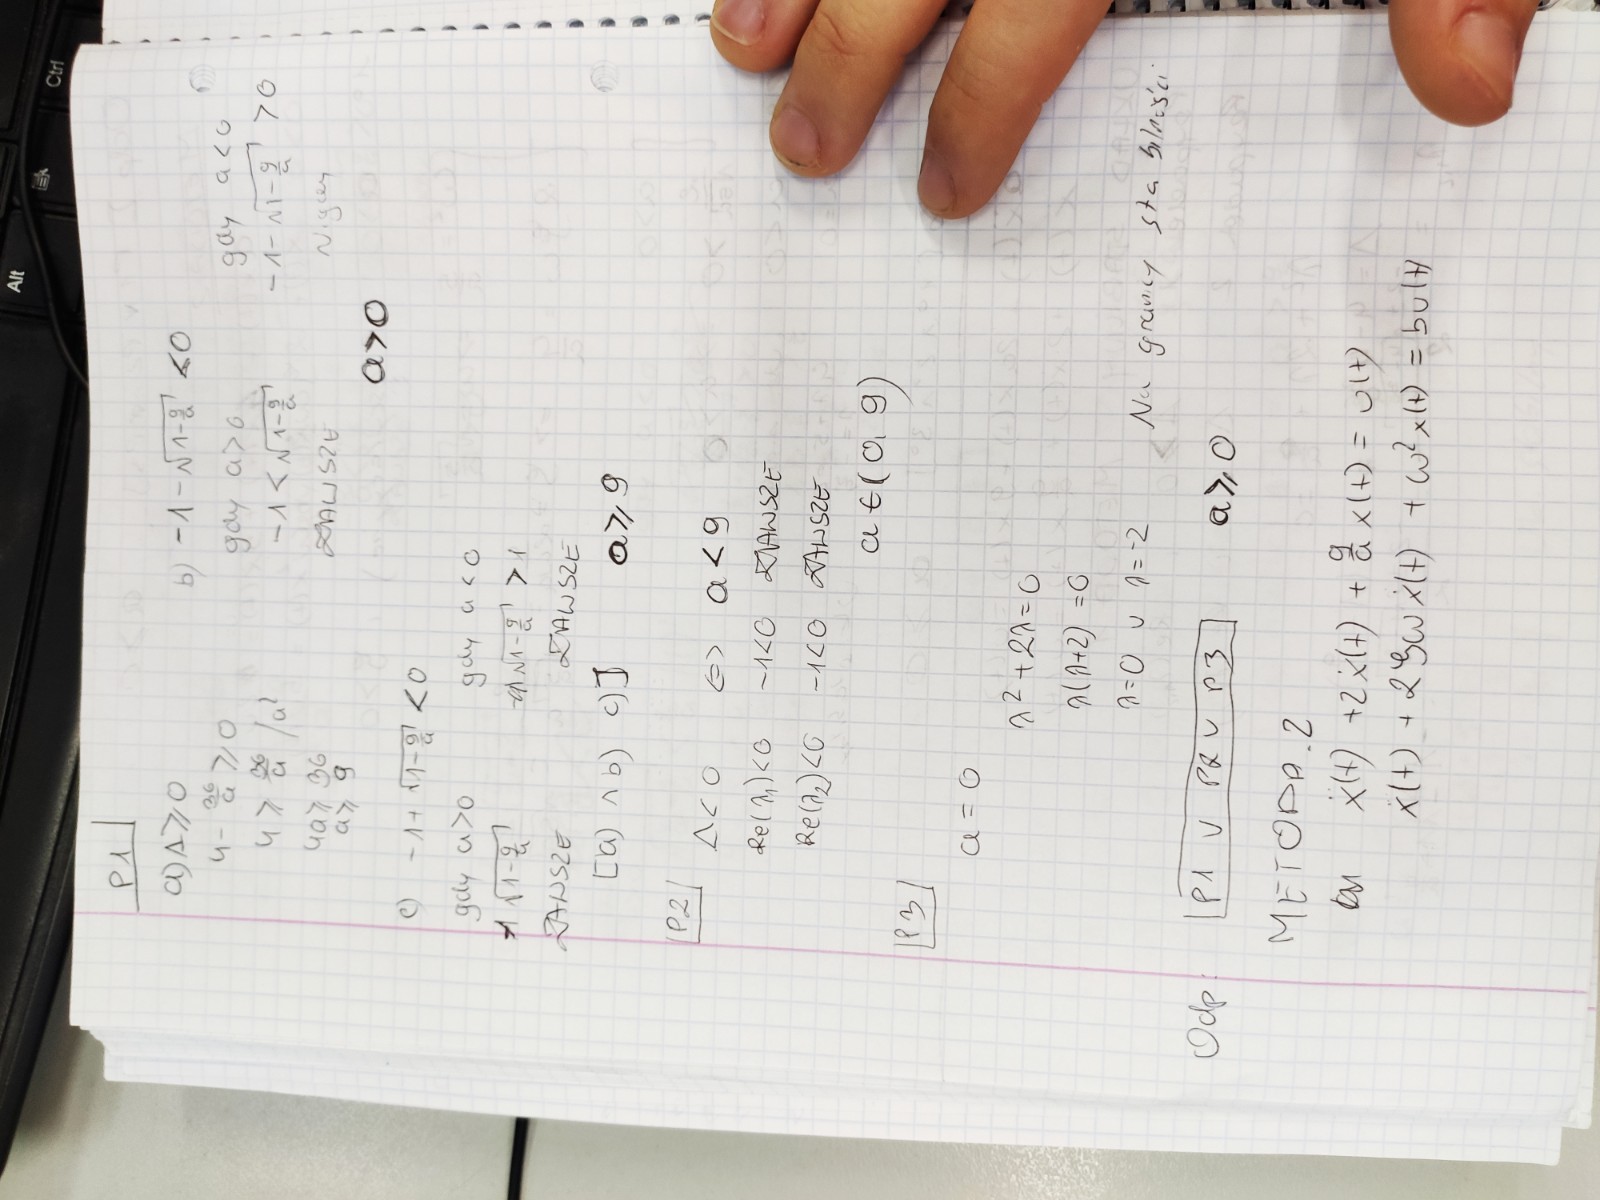 P1
a) Δ ≥ 0
4 - 36/a ≥ 0
4 ≥ 36/a /a²
4a ≥ 36
a ≥ 9
b) -1 - √(1 - 9/a) < 0
gdy a > 0
-1 < √(1 - 9/a)
ZAWSZE
gdy a < 0
-1 - √(1 - 9/a) > 0
Nigdy
a > 0
c) -1 + √(1 - 9/a) < 0
gdy a > 0
1 √(1 - 9/a)
ZAWSZE
gdy a < 0
√(1 - 9/a) > 1
ZAWSZE
[a) ∧ b) c)] a ≥ 9
P2
Δ < 0 ⇔ a < 9
Re(λ₁) < 0 -1 < 0 ZAWSZE
Re(λ₂) < 0 -1 < 0 ZAWSZE
a ∈ (0, 9)
P3
a = 0
λ² + 2λ = 0
λ(λ+2) = 0
λ = 0 ∪ λ = -2 Na granicy stabilności
Odp: P1 ∪ P2 ∪ P3 a ≥ 0
METODA. 2
ẍ(t) + 2ẋ(t) + 9/a x(t) = u(t)
ẍ(t) + 2ξω ẋ(t) + ω² x(t) = bu(t)
Alt
Ctrl